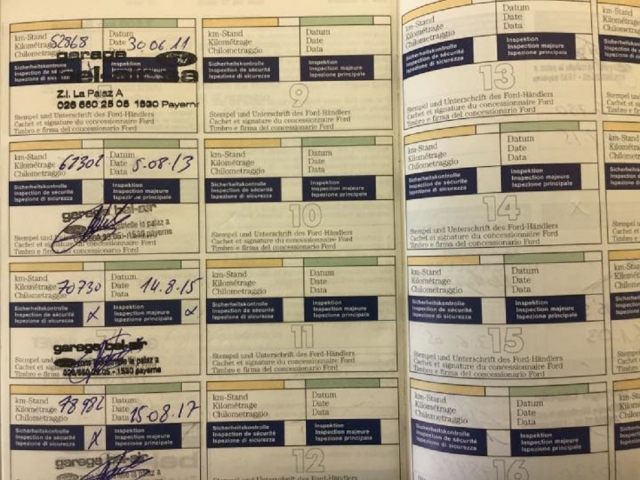 km-Stand 52868 Datum
Kilométrage Date 30.06.11
Chilometraggio Data
Sicherheitskontrolle Inspektion
Inspection de sécurité Inspection majeure
Ispezione di sicurezza Ispezione principale
garage
Z.I. La Palaz A
026 660 25 05 1530 Payerne
Stempel und Unterschrift des Ford-Händlers
Cachet et signature du concessionnaire Ford
Timbro e firma del concessionario Ford
km-Stand Datum
Kilométrage 67302 Date 5.08.13
Chilometraggio Data
Sicherheitskontrolle Inspektion
Inspection de sécurité Inspection majeure
Ispezione di sicurezza Ispezione principale
garage bel-air
industrielle la palaz a
1530 payerne
km-Stand Datum
Kilométrage 70730 Date 14.8.15
Chilometraggio Data
Sicherheitskontrolle Inspektion
Inspection de sécurité X Inspection majeure X
Ispezione di sicurezza Ispezione principale
garage bel-air
la palaz a
1530 payerne
km-Stand 78982 Datum
Kilométrage Date 15.08.17
Chilometraggio Data
Sicherheitskontrolle Inspektion
Inspection de sécurité X Inspection majeure
Ispezione di sicurezza Ispezione principale
garage bel-air
km-Stand Datum
Kilométrage Date
Chilometraggio Data
Sicherheitskontrolle Inspektion
Inspection de sécurité Inspection majeure
Ispezione di sicurezza Ispezione principale
9
Stempel und Unterschrift des Ford-Händlers
Cachet et signature du concessionnaire Ford
Timbro e firma del concessionario Ford
km-Stand Datum
Kilométrage Date
Chilometraggio Data
Sicherheitskontrolle Inspektion
Inspection de sécurité Inspection majeure
Ispezione di sicurezza Ispezione principale
10
Stempel und Unterschrift des Ford-Händlers
Cachet et signature du concessionnaire Ford
Timbro e firma del concessionario Ford
km-Stand Datum
Kilométrage Date
Chilometraggio Data
Sicherheitskontrolle Inspektion
Inspection de sécurité Inspection majeure
Ispezione di sicurezza Ispezione principale
11
Stempel und Unterschrift des Ford-Händlers
Cachet et signature du concessionnaire Ford
Timbro e firma del concessionario Ford
km-Stand Datum
Kilométrage Date
Chilometraggio Data
Sicherheitskontrolle Inspektion
Inspection de sécurité Inspection majeure
Ispezione di sicurezza Ispezione principale
12
km-Stand Datum
Kilométrage Date
Chilometraggio Data
Sicherheitskontrolle Inspektion
Inspection de sécurité Inspection majeure
Ispezione di sicurezza Ispezione principale
13
Stempel und Unterschrift des Ford-Händlers
Cachet et signature du concessionnaire Ford
Timbro e firma del concessionario Ford
km-Stand Datum
Kilométrage Date
Chilometraggio Data
Sicherheitskontrolle Inspektion
Inspection de sécurité Inspection majeure
Ispezione di sicurezza Ispezione principale
14
Stempel und Unterschrift des Ford-Händlers
Cachet et signature du concessionnaire Ford
Timbro e firma del concessionario Ford
km-Stand Datum
Kilométrage Date
Chilometraggio Data
Sicherheitskontrolle Inspektion
Inspection de sécurité Inspection majeure
Ispezione di sicurezza Ispezione principale
15
Stempel und Unterschrift des Ford-Händlers
Cachet et signature du concessionnaire Ford
Timbro e firma del concessionario Ford
km-Stand Datum
Kilométrage Date
Chilometraggio Data
Sicherheitskontrolle Inspektion
Inspection de sécurité Inspection majeure
Ispezione di sicurezza Ispezione principale
16